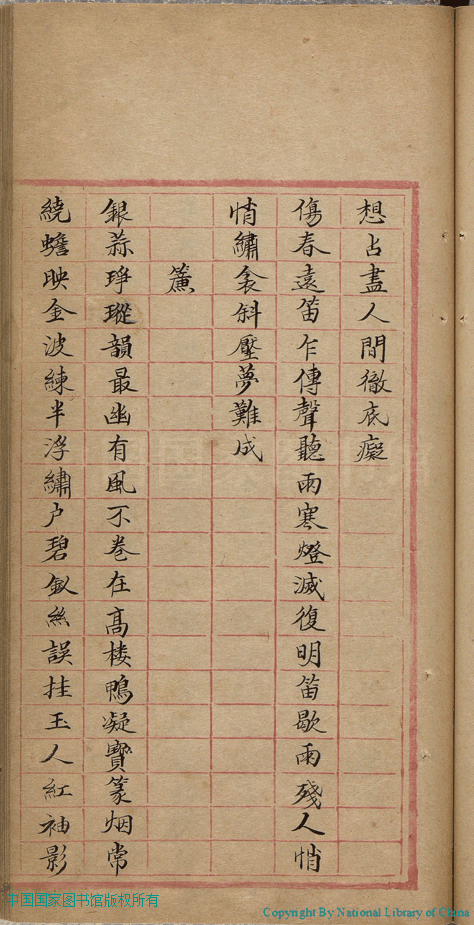 想占盡人間徹底癡
傷春遠笛乍傳聲聽雨寒燈滅復明笛歇雨殘人悄
悄繡衾斜壓夢難成
簾
銀蒜琤瑽韻最幽有風不卷在高楼鴨凝寶篆烟常
繞蟾映金波練半浮繡户碧釵絲誤挂玉人紅袖影
中国国家图书馆版权所有
Copyright By National Library of China